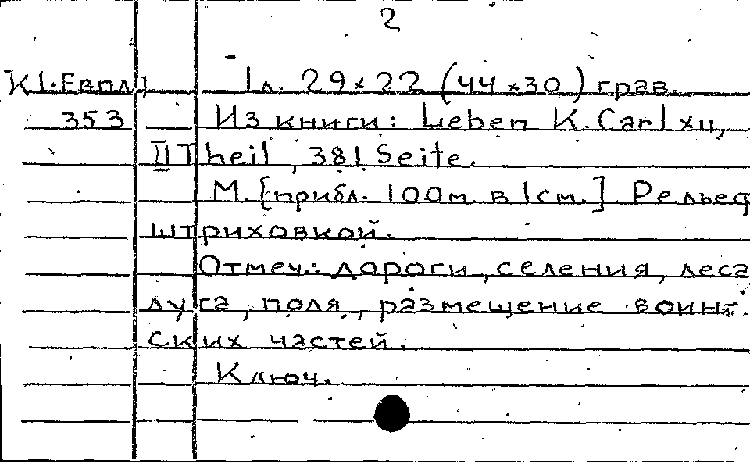 2
К 1-Евпл 1 1л. 29×22 (44×30) грав.
353 Из книги: Leben K. Carl XII,
II Theil, 381 Seite.
М. [прибл. 100м в 1см.] Рельеф
штриховкой.
Отмеч.: дороги, селения, леса
луга, поля, размещение воинс-
ских частей.
Ключ.